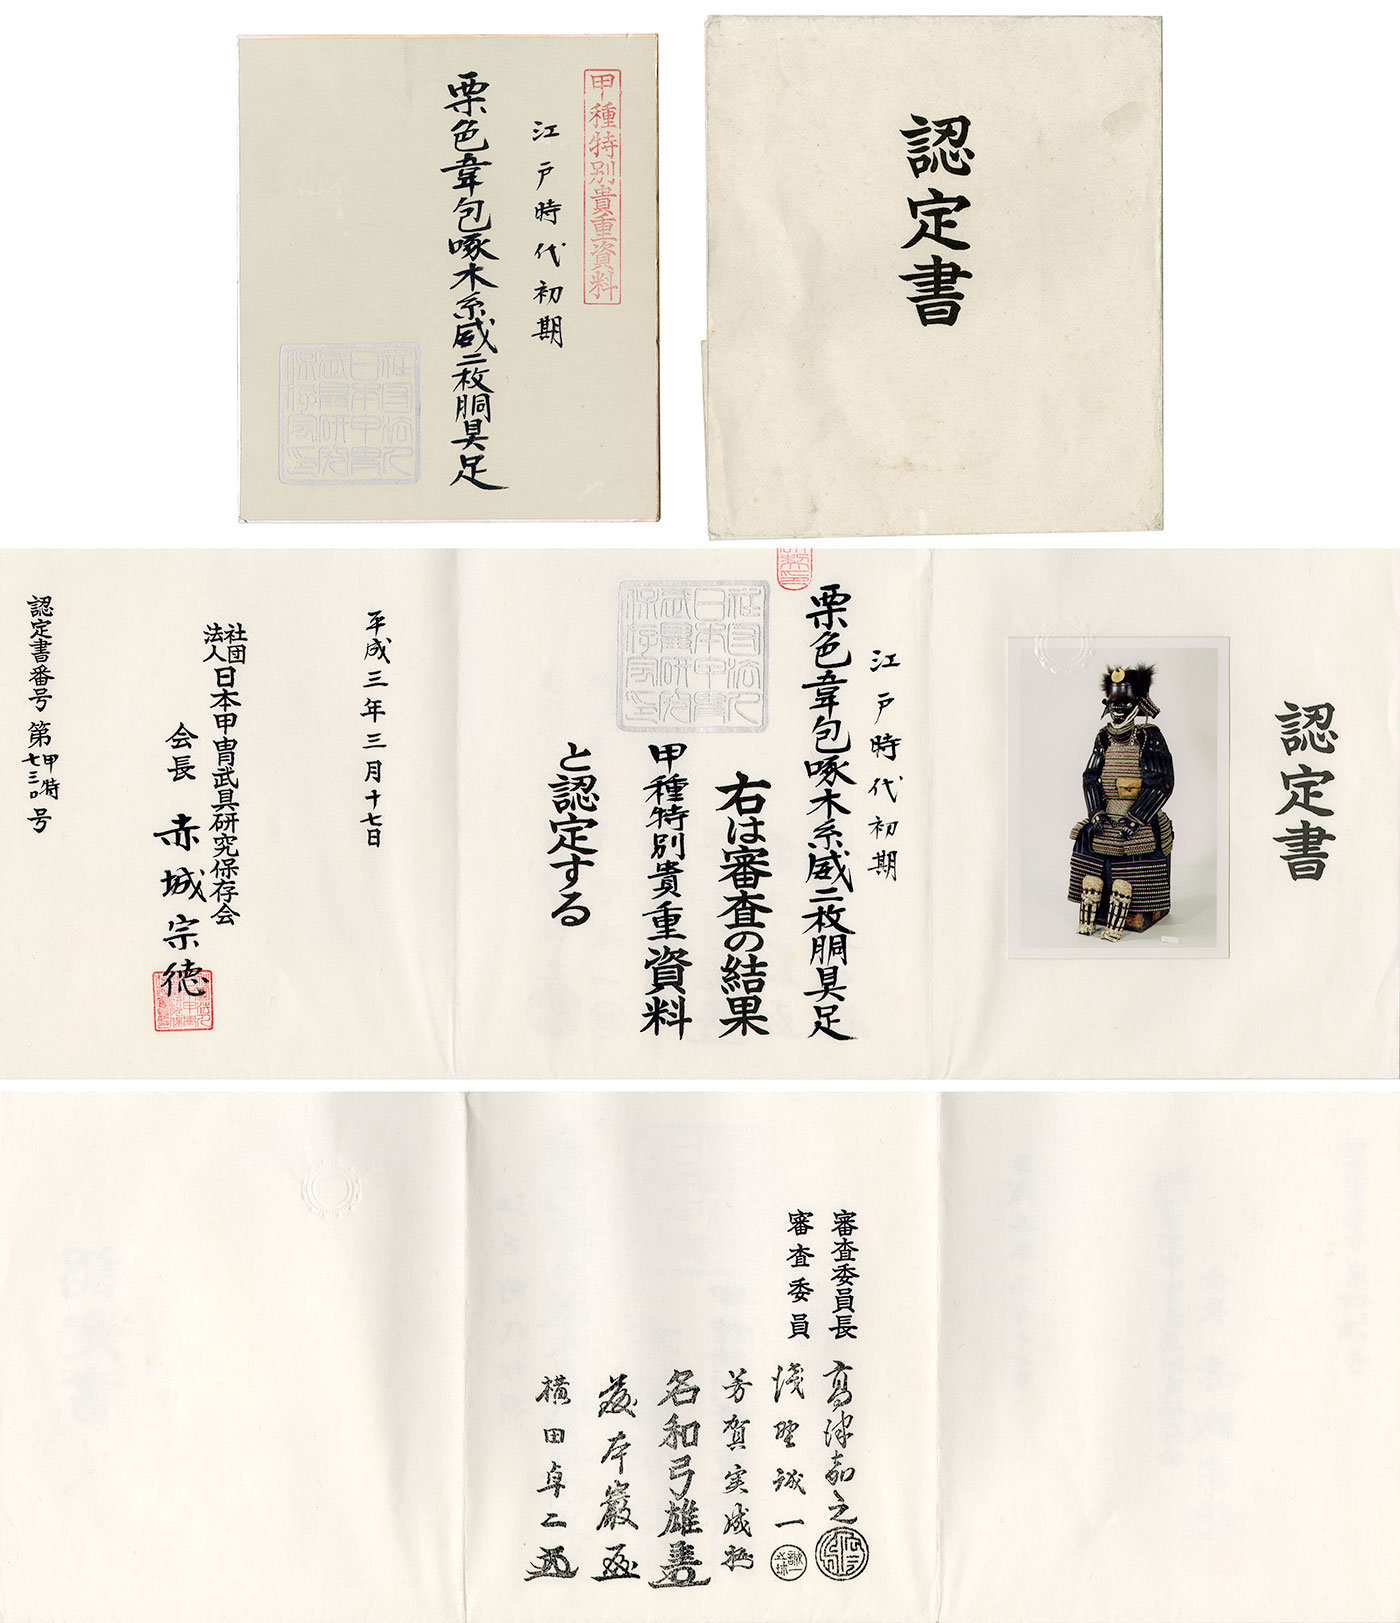 認定書
甲種特別貴重資料
江戸時代初期
栗色韋包啄木糸威二枚胴具足
認定書
江戸時代初期
栗色韋包啄木糸威二枚胴具足
右は審査の結果
甲種特別貴重資料
と認定する
平成三年三月十七日
社団法人日本甲冑武具研究保存会
会長 赤城宗徳
認定書番号 第甲特七三〇号
審査委員長 高津嘉之
審査委員 浅野誠一
芳賀実成
名和弓雄
藤本巖
横田卓二